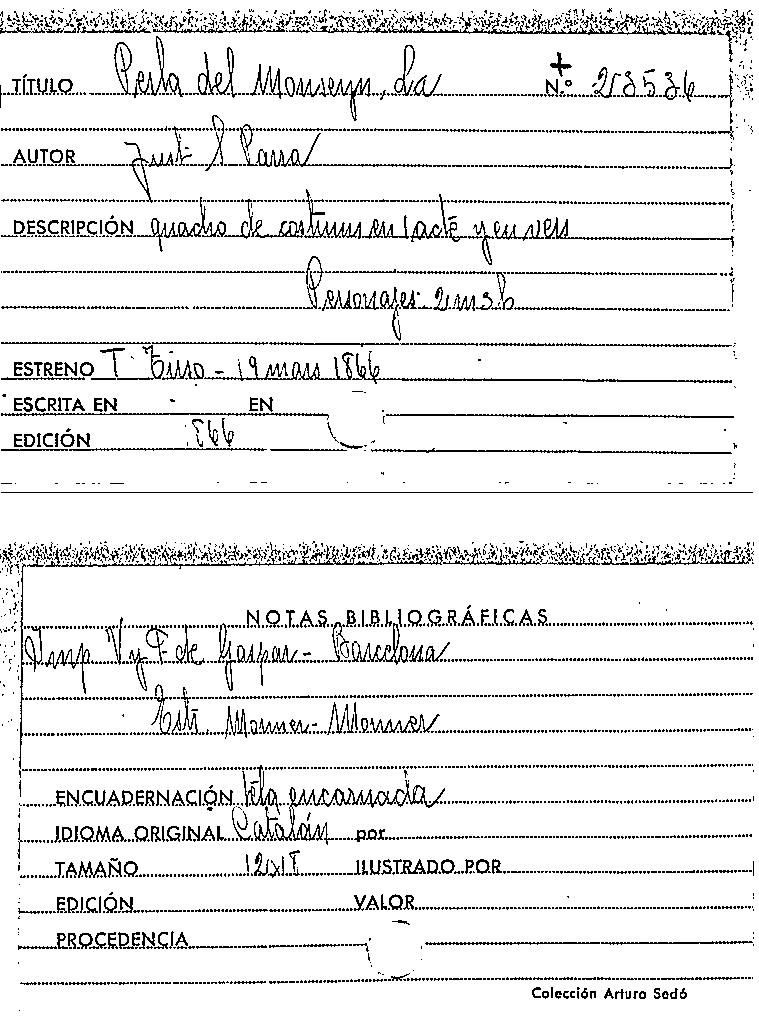 TÍTULO Perla del Monseyn, La N.º 213536
AUTOR Just. S Parra
DESCRIPCIÓN quadro de costums en 1 acte y en vers
Personajes: 2m 3h
ESTRENO T. Tirso - 19 mars 1866
ESCRITA EN EN
EDICIÓN 1866
NOTAS BIBLIOGRÁFICAS
Imp V y F de Gaspar - Barcelona
Monner - Monner
ENCUADERNACIÓN tela encarnada
IDIOMA ORIGINAL Catalán por
TAMAÑO 12x18 ILUSTRADO POR
EDICIÓN VALOR
PROCEDENCIA
Colección Arturo Sedó